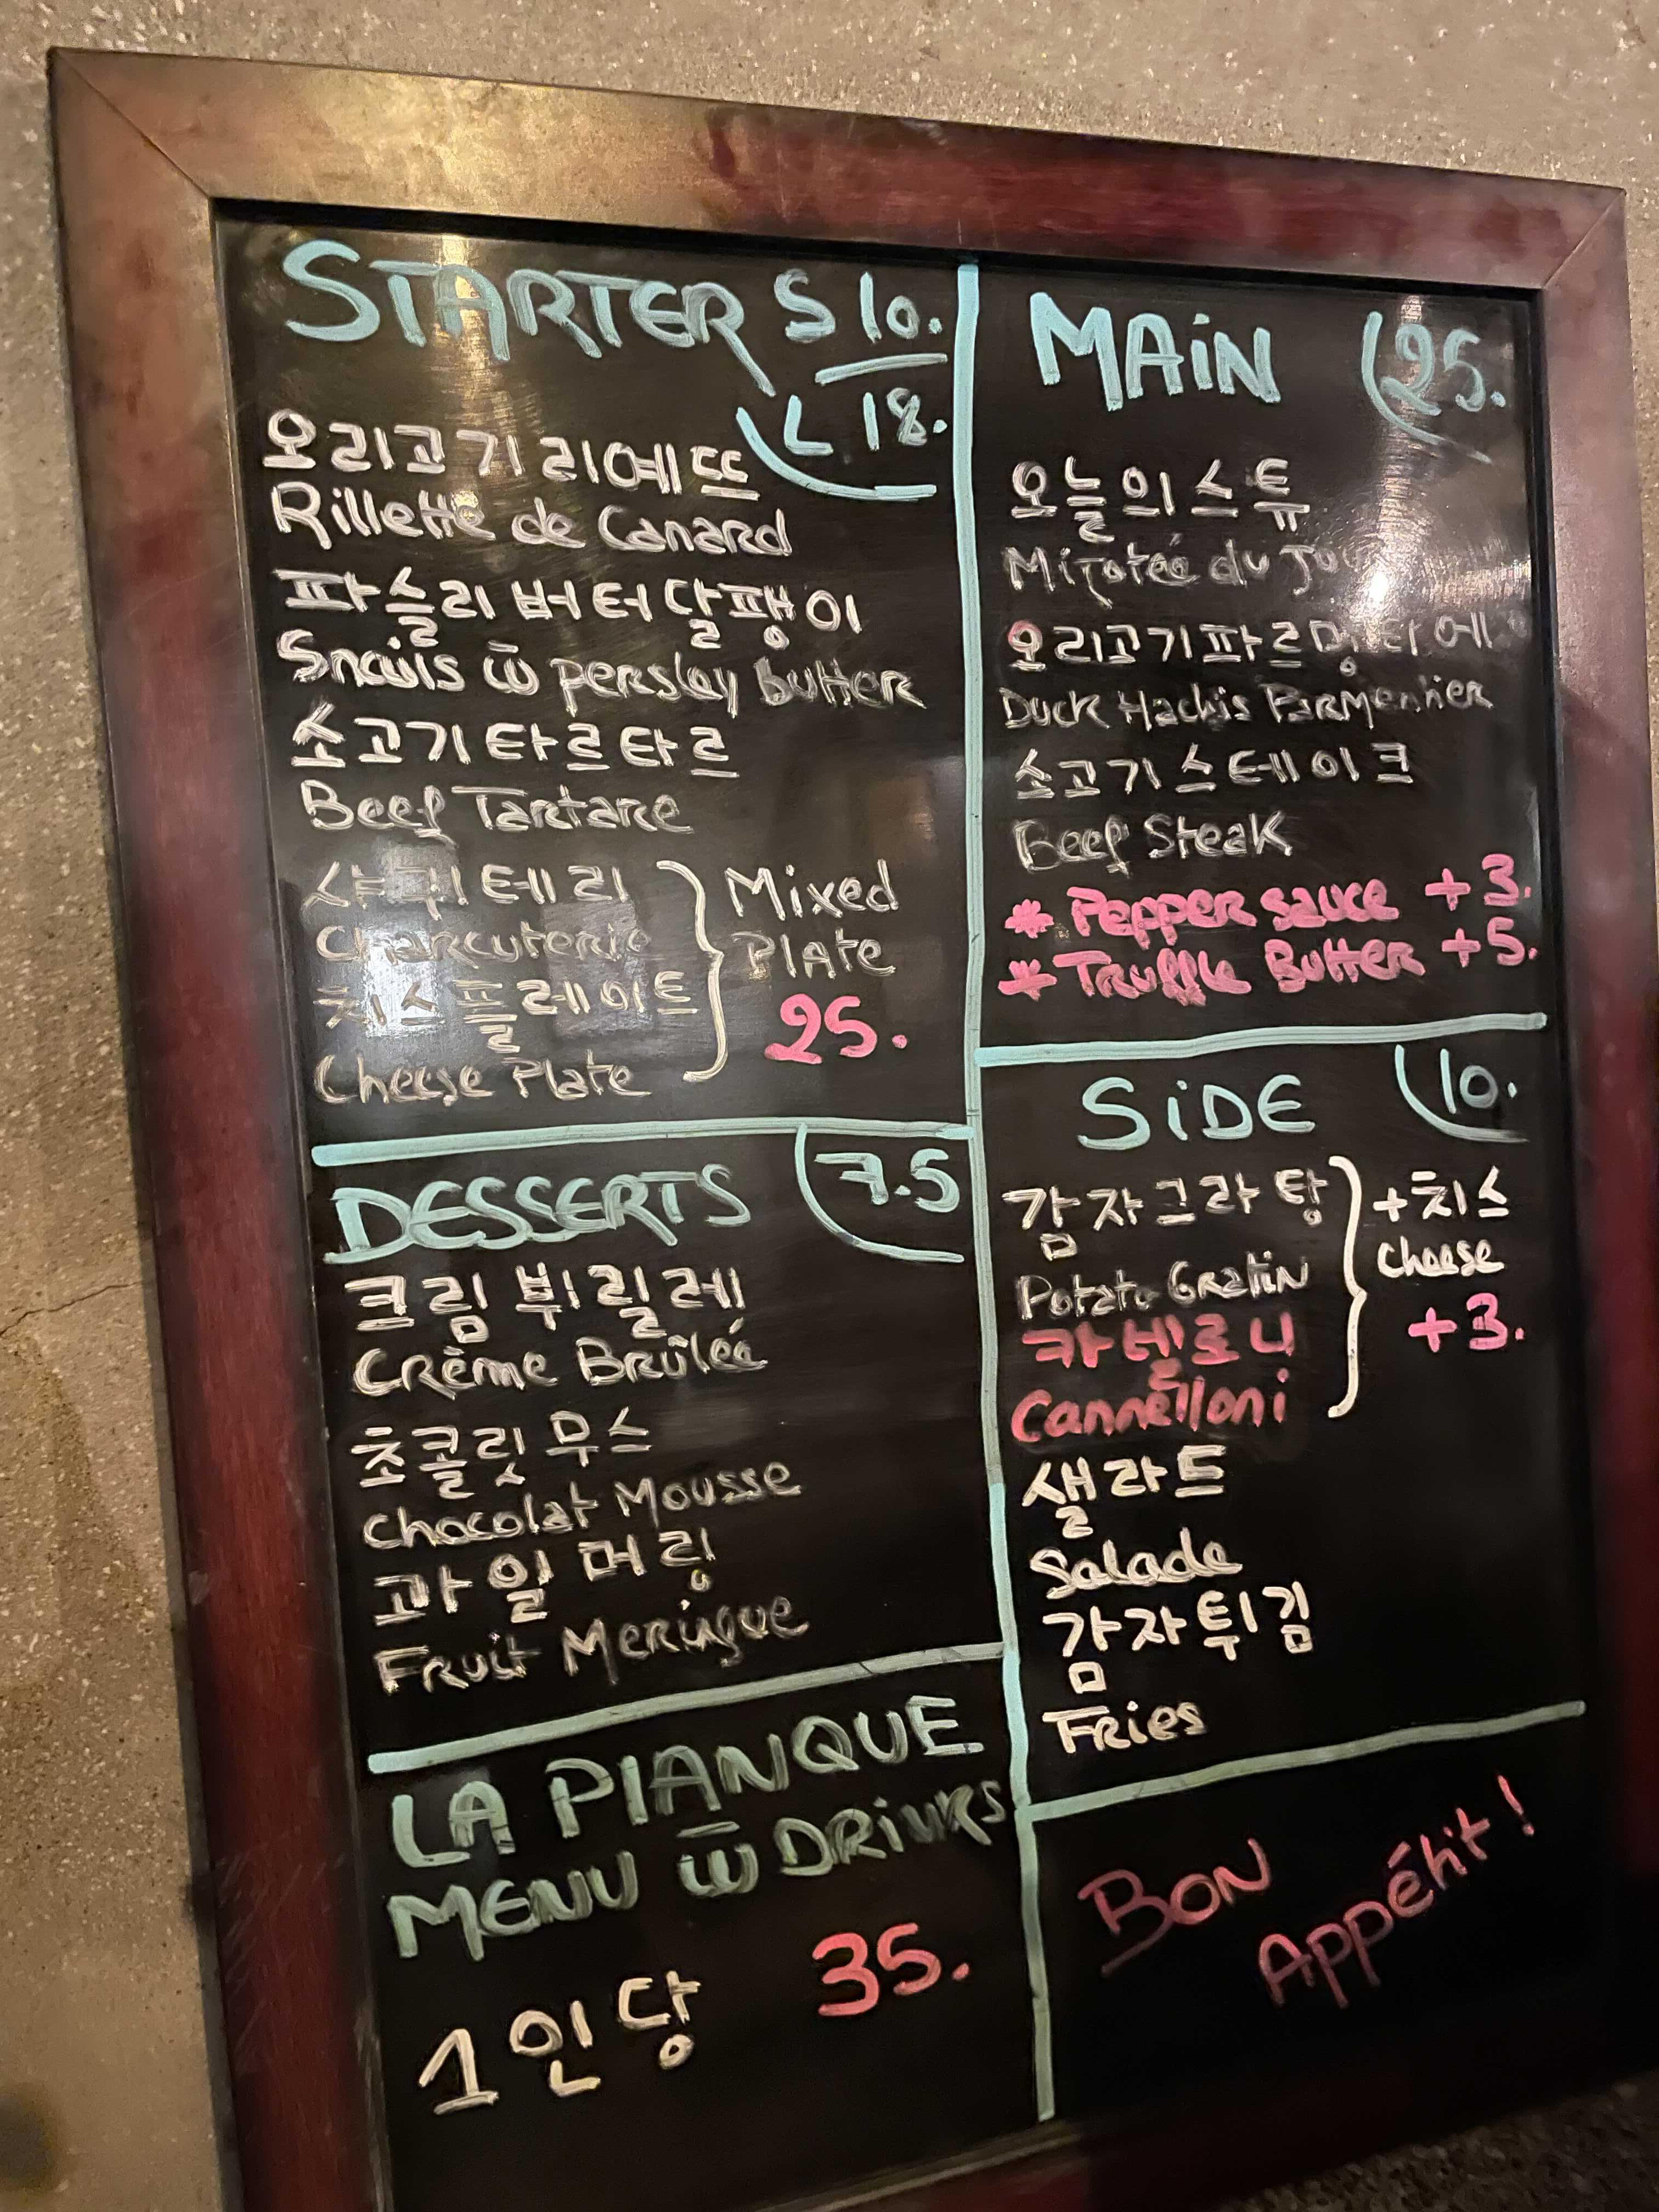 STARTER S 10.
L 18.
오리고기리예뜨
Rillette de Canard
파슬리버터달팽이
Snails w̄ persley butter
소고기타르타르
Beef Tartare
샤퀴테리
Charcuterie
치스플레이트
Cheese Plate
Mixed
Plate
25.
MAiN 25.
오늘의스튜
Mijotée du Jour
오리고기파르망티에
Duck Hachis Parmentier
소고기스테이크
Beef Steak
* Pepper sauce +3.
* Truffle Butter +5.
DESSERTS 7.5
크림 뷔릴레
Crème Brûlée
초콜릿 무스
Chocolat Mousse
과일 머링
Fruit Meringue
SiDE 10.
감자그라탕
Potato Gratin
카넬로니
Cannelloni
+치스
cheese
+3.
샐라드
Salade
감자튀김
Fries
LA PLANQUE
MENU w̄ DRiNKS
1인당 35.
BON
Appétit !